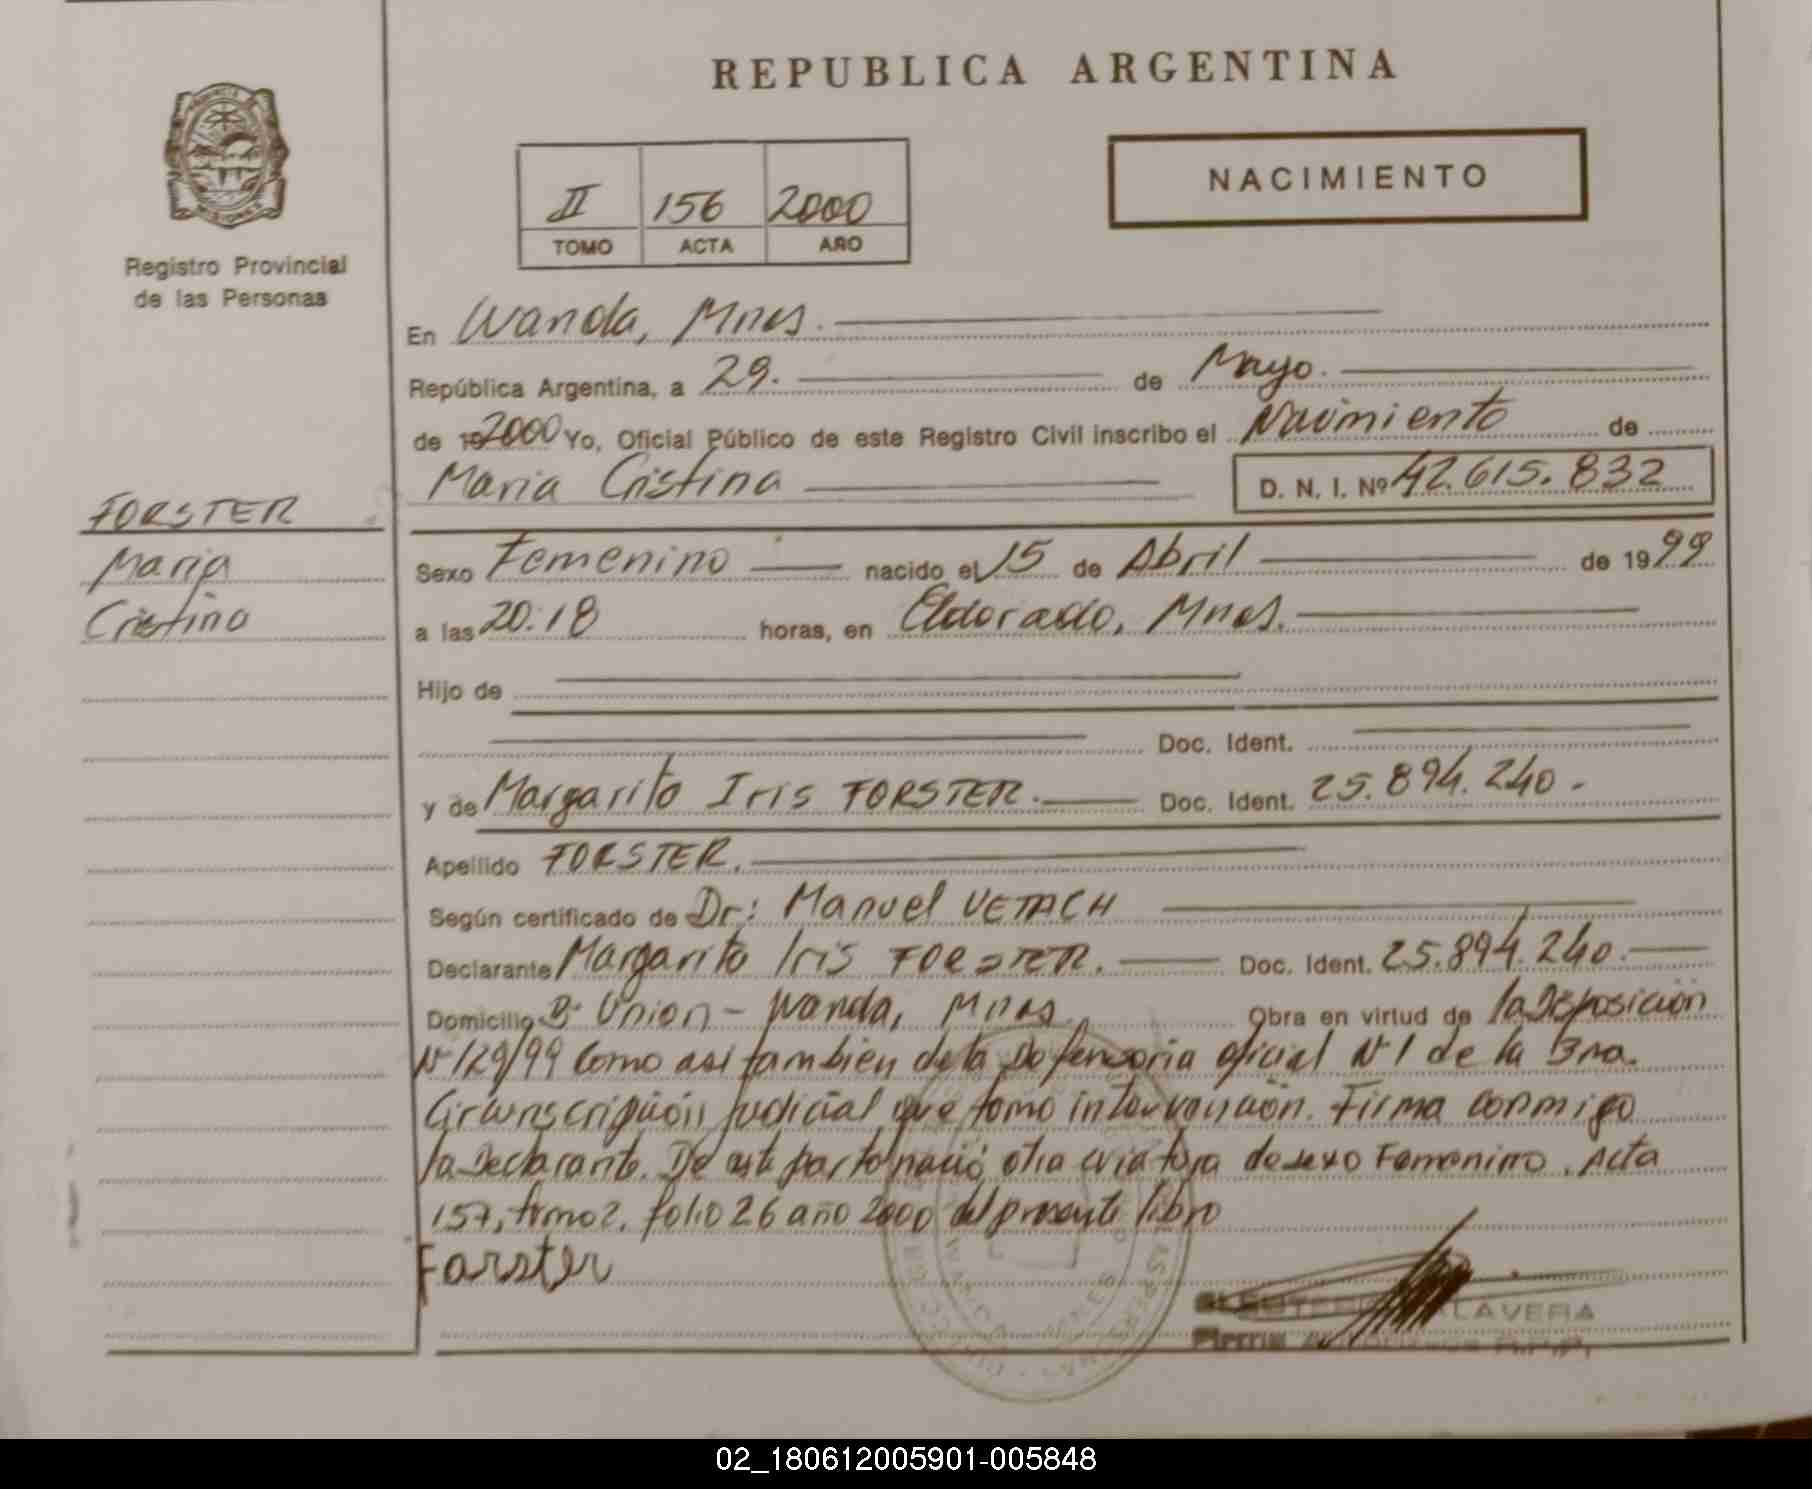 REPUBLICA ARGENTINA
PROVINCIA DE
MISIONES
Registro Provincial
de las Personas
II 156 2000
TOMO ACTA AÑO
NACIMIENTO
En Wanda, Mnes.
República Argentina, a 29. de Mayo.
de 192000 Yo, Oficial Público de este Registro Civil inscribo el Nacimiento de
Maria Cristina D. N. I. Nº 42.615.832
FORSTER
Maria
Cristina
Sexo Femenino nacido el 15 de Abril de 1999
a las 20:18 horas, en Eldorado, Mnes.
Hijo de
Doc. Ident.
y de Margarita Iris FORSTER. Doc. Ident. 25.894.240.
Apellido FORSTER.
Según certificado de Dr: Manuel VETACH
Declarante Margarita Iris FORSTER. Doc. Ident. 25.894.240.
Domicilio Bº Union - Wanda, Mnes. Obra en virtud de la Disposición
Nº 129/99 como asi también de la Defensoria oficial Nº 1 de la 3ra.
Circunscripción judicial que tomo intervención. Firma conmigo
la Declarante. De este parto nació otra criatura de sexo Femenino. Acta
157, tomo 2, folio 26 año 2000 del presente libro
Forster
ALAVERA
R.P.P.
02_180612005901-005848